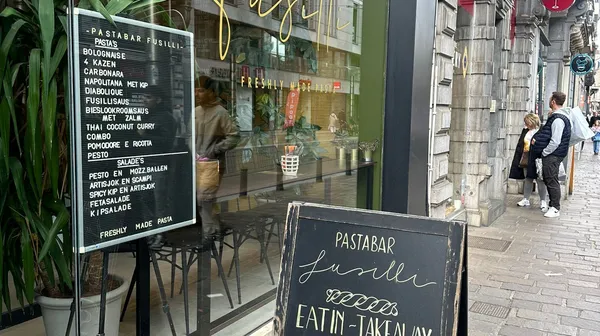 -PASTABAR FUSILLI-
PASTA'S
BOLOGNAISE
4 KAZEN
CARBONARA
NAPOLITANA MET KIP
DIABOLIQUE
FUSILLISAUS
BIESLOOKROOMSAUS
MET ZALM
THAI COCONUT CURRY
COMBO
POMODORE E RICOTTA
PESTO
SALADE'S
PESTO EN MOZZ.BALLEN
ARTISJOK EN SCAMPI
SPICY KIP EN ARTISJOK
FETASALADE
KIPSALADE
FRESHLY MADE PASTA
fusilli
FRESHLY MADE
PASTABAR
fusilli
EATIN-TAKEAWAY